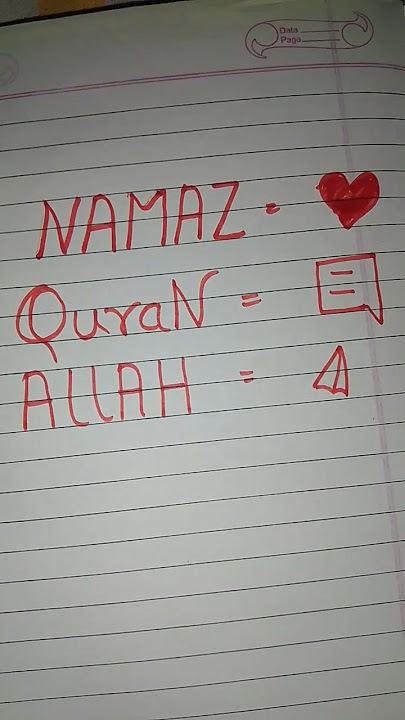 Data
Page
NAMAZ = ❤
QuraN =
ALLAH =